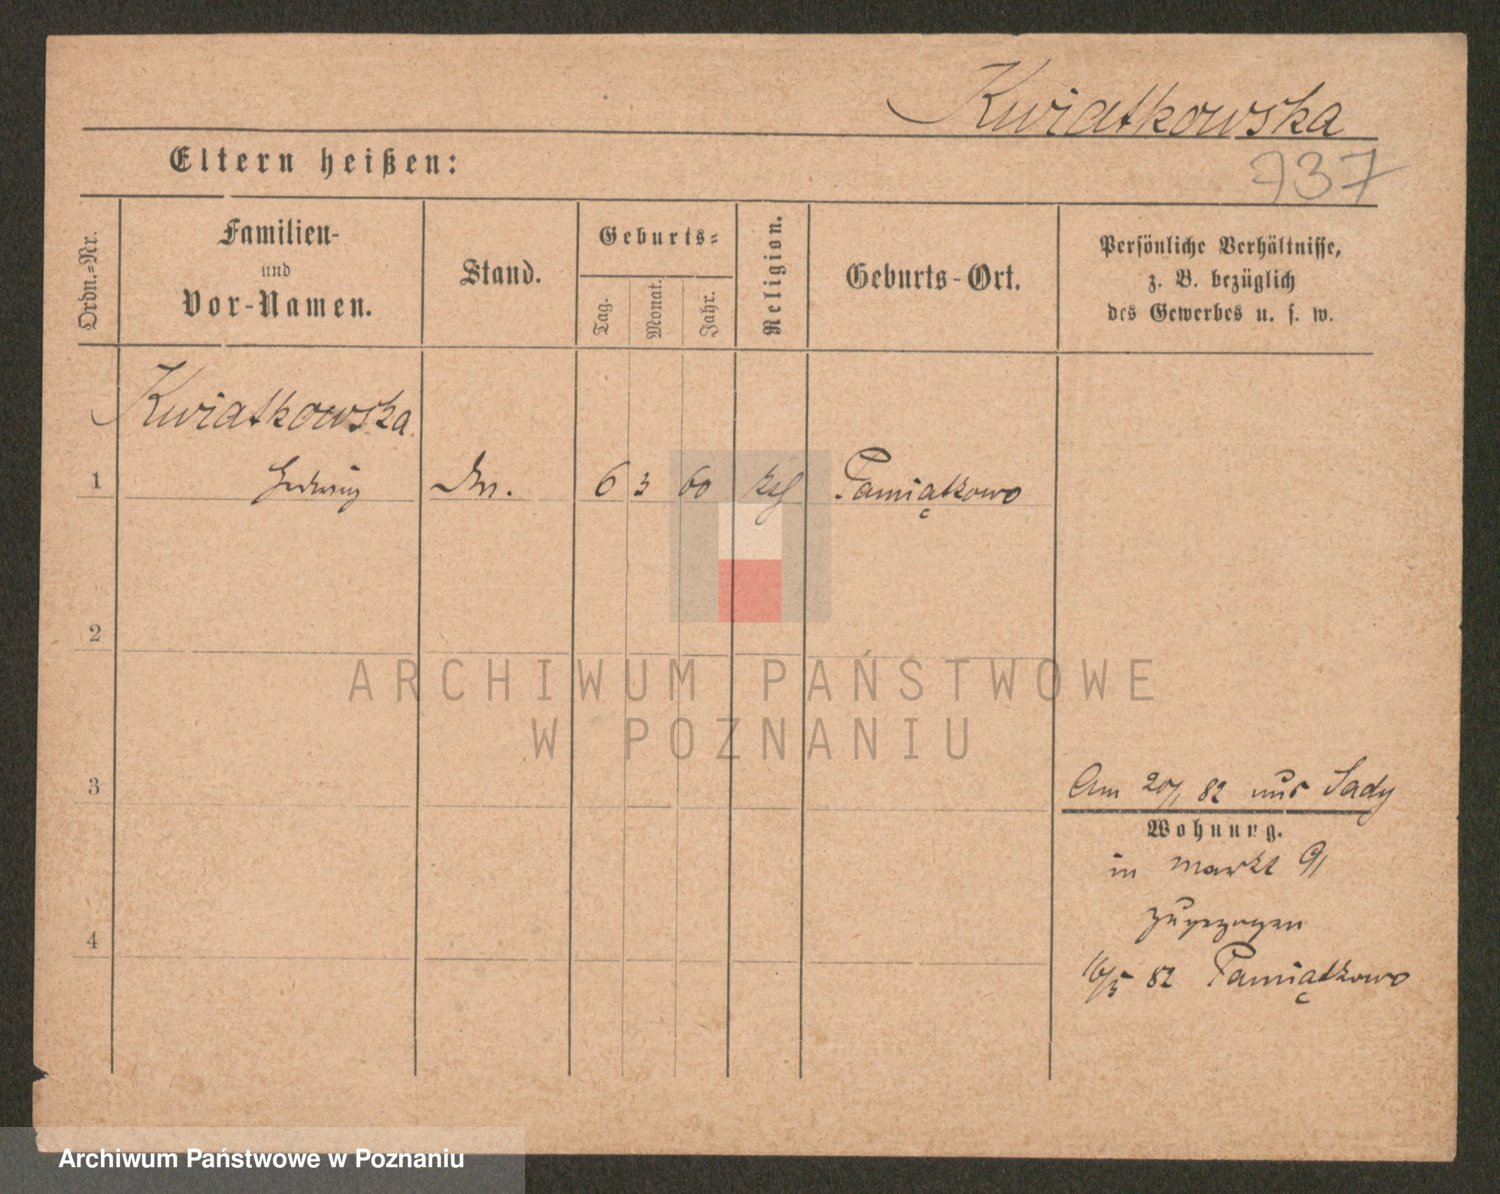 Kwiatkowska
737
Eltern heißen:
Ordn.=Nr.
Familien-
und
Vor-Namen.
Stand.
Geburts=
Tag.
Monat.
Jahr.
Religion.
Geburts-Ort.
Persönliche Verhältnisse,
z. B. bezüglich
des Gewerbes u. s. w.
Kwiatkowska
1 Hedwig 6 3 60 kth Pamiątkowo
2
ARCHIWUM PAŃSTWOWE
W POZNANIU
3
Am 20/1 82 aus Sady
Wohnung.
in Markt 91
zugezogen
4
16/5 82 Pamiątkowo
Archiwum Państwowe w Poznaniu